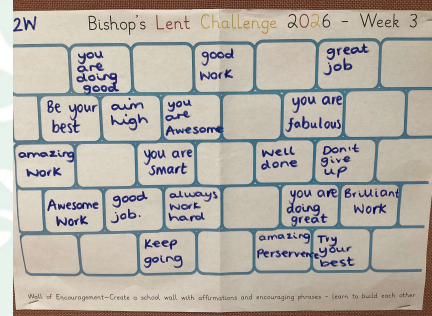 2W Bishop's Lent Challenge 2026 - Week 3
you
are
doing
good
good
work
great
job
Be your
best
aim
high
you
are
Awesome
you are
fabulous
amazing
work
you are
smart
well
done
Don't
give
up
Awesome
work
good
job.
always
work
hard
you are
doing
great
Brilliant
work
Keep
going
amazing
Perservere
Try
your
best
Wall of Encouragement-Create a school wall with affirmations and encouraging phrases - learn to build each other